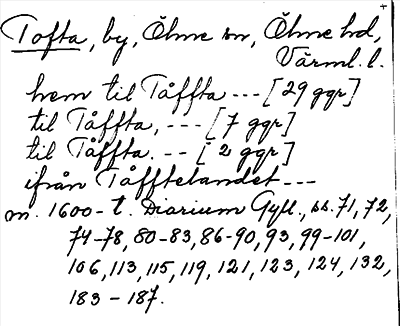 Tofta, by, Ölme sn, Ölme hd,
Värml. l.
hem til Tåffta --- [29 ggr]
til Tåffta, --- [7 ggr]
til Tåffta. -- [2 ggr]
ifrån Tåfftelandet ---
m. 1600-t. Diarium Gyll., ss. 71, 72,
74-78, 80-83, 86-90, 93, 99-101,
106, 113, 115, 119, 121, 123, 124, 132,
183-187.